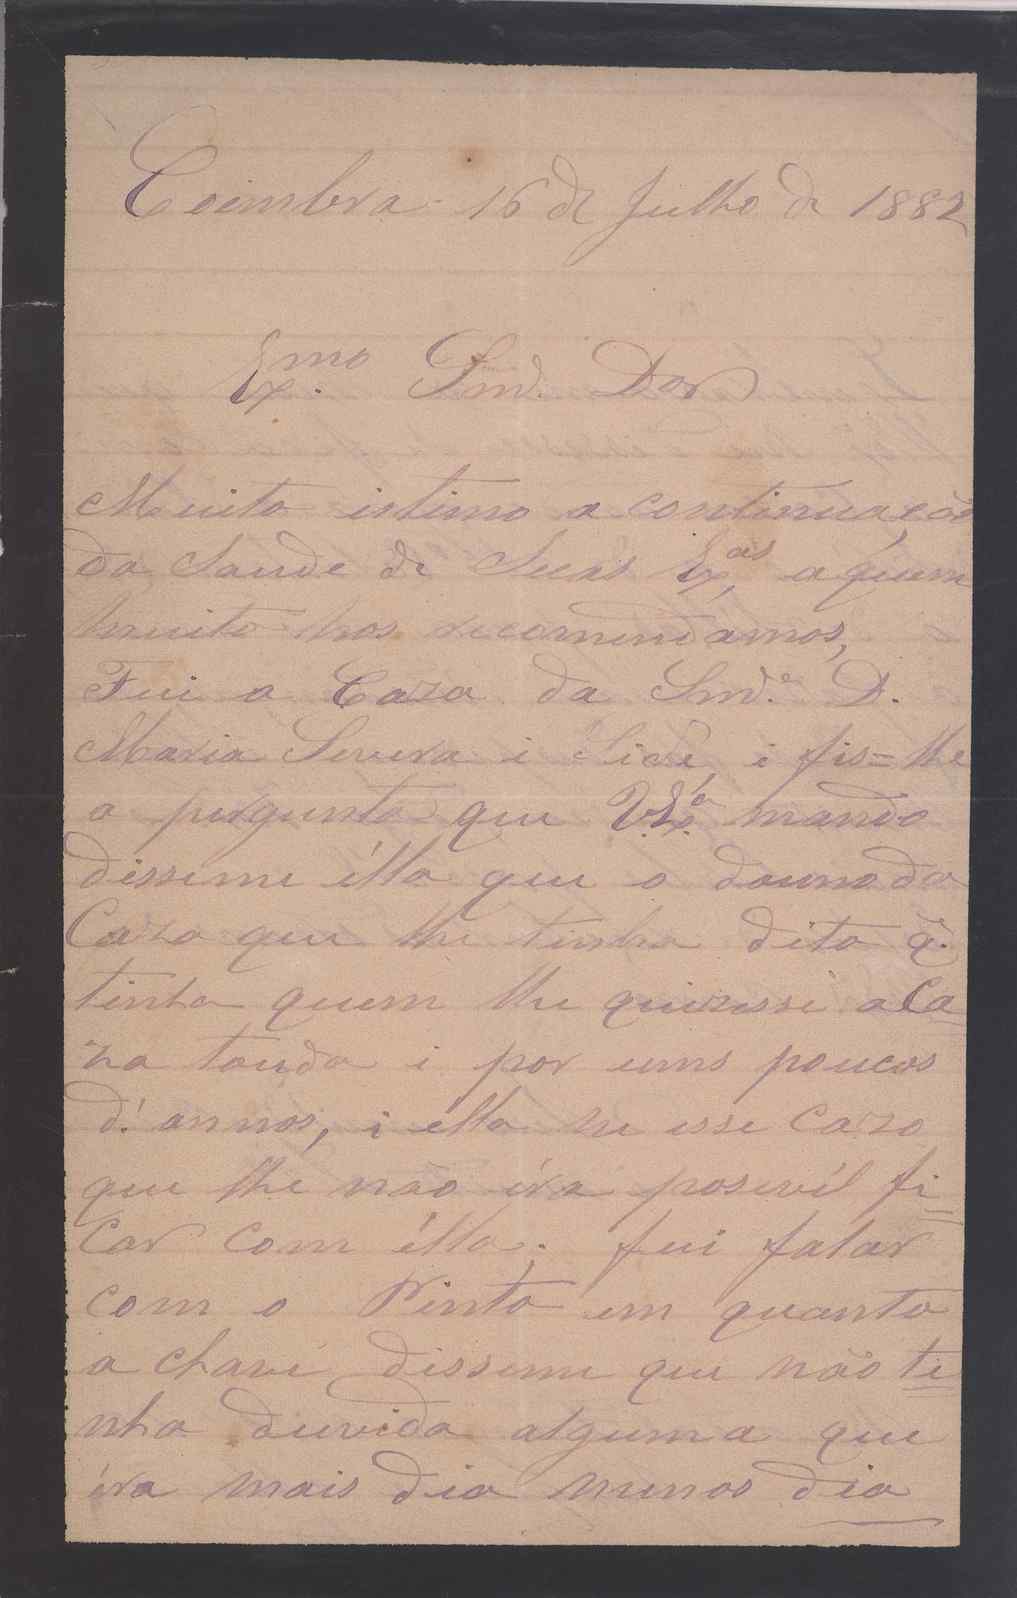 Coimbra 16 de Julho de 1882
Ex.mo Snr. Dor
Muito istimo a continuação
da Saude de Suas Ex,as a quem
muito nos recomendamos,
Fui a Caza da Snr.a D.
Maria Severa i fis=lhe
a pergunta que V.Ex.a mando
disseme élla que o douno da
Caza que lhe tinha dito q.
tinha quem lhe quizesse a Ca
za touda i por uns poucos
d'annos, i élla ne esse cazo
que lhe não éra posevél fi
car com élla. fui falar
com o Pinto em quanto
a chave disseme que não ti
nha duvida alguma que
éra mais dia menos dia